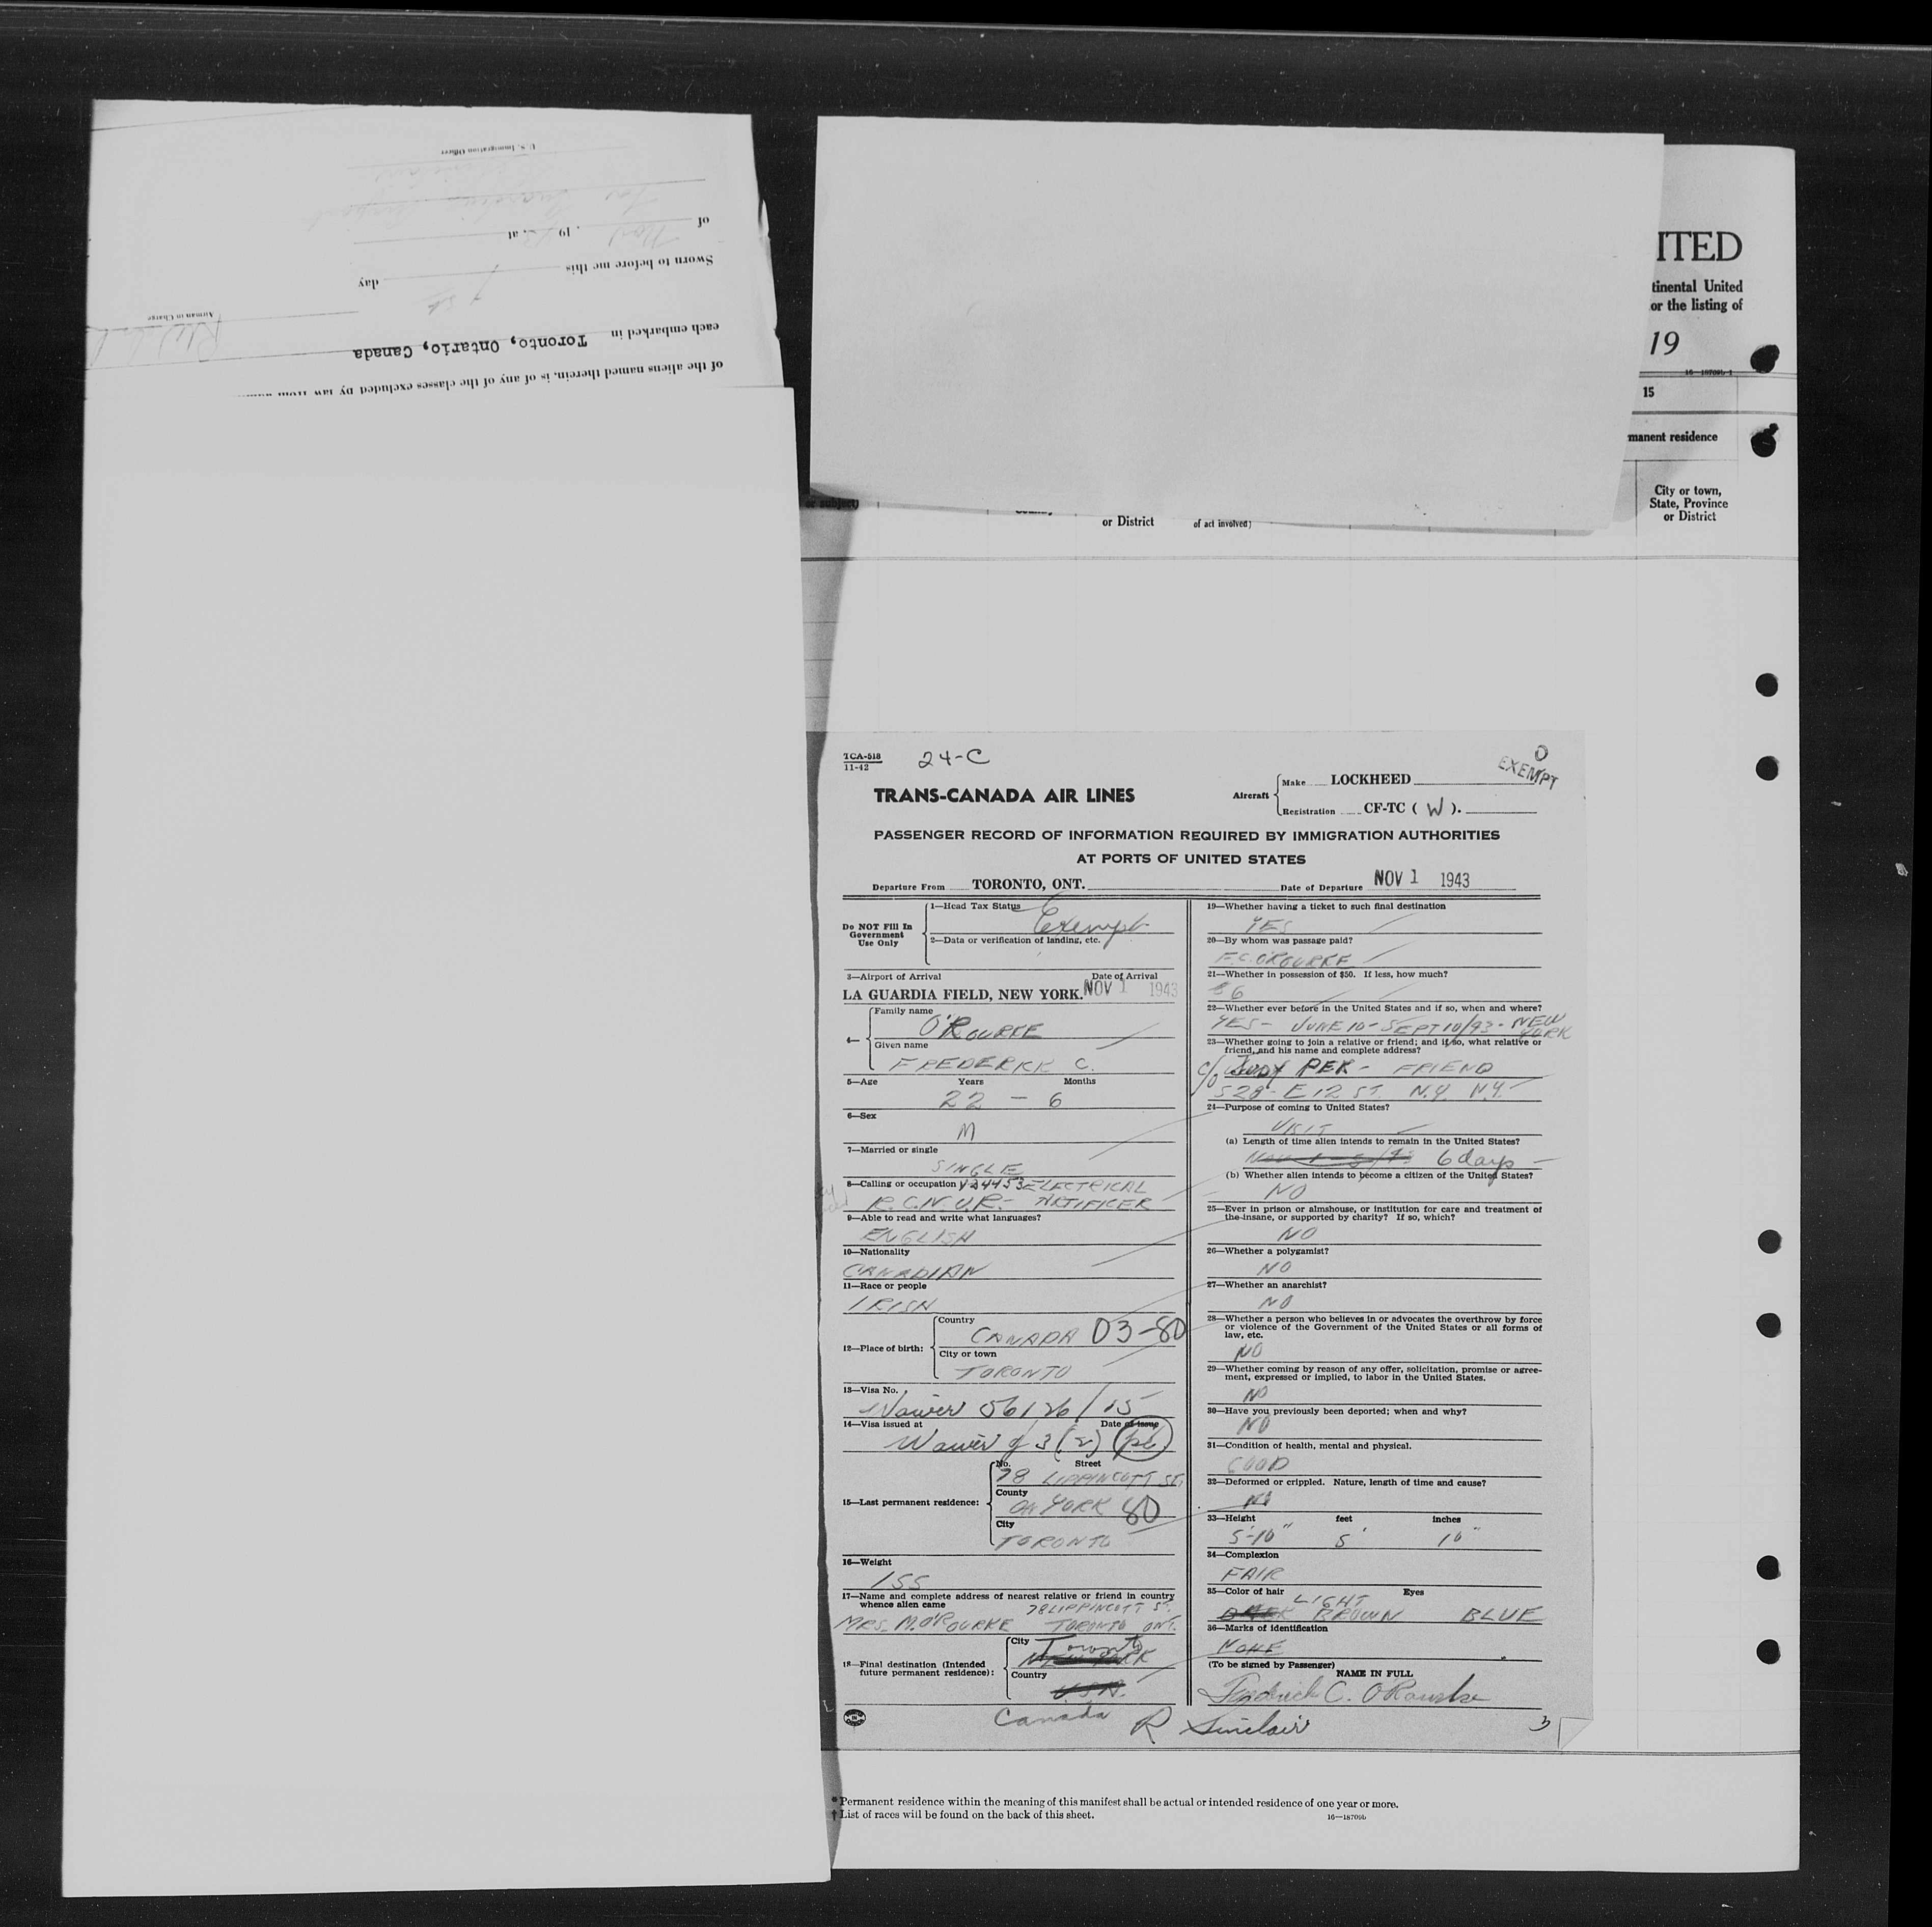 U. S. Immigration Officer
of Nov , 19 43, at
Sworn to before me this 1st day
Airman in Charge
each embarked in Toronto, Ontario, Canada
of the aliens named therein, is of any of the classes excluded by law from
ITED
tinental United
or the listing of
19
16—18709b-1
15
manent residence
City or town,
State, Province
or District
or subject)
or District
of act involved)
TCA-518
11-42
24-C
EXEMPT
TRANS-CANADA AIR LINES
Aircraft
Make LOCKHEED
Registration CF-TC ( W ).
PASSENGER RECORD OF INFORMATION REQUIRED BY IMMIGRATION AUTHORITIES
AT PORTS OF UNITED STATES
Departure From TORONTO, ONT. Date of Departure NOV 1 1943
Do NOT Fill In
Government
Use Only
1—Head Tax Status
Exempt
2—Data or verification of landing, etc.
3—Airport of Arrival Date of Arrival
LA GUARDIA FIELD, NEW YORK. NOV 1 1943
4—
Family name
O'ROURKE
Given name
FREDERICK C.
5—Age Years Months
22 — 6
6—Sex
M
7—Married or single
SINGLE
8—Calling or occupation V24453 ELECTRICAL
R.C.N.V.R.- ARTIFICER
9—Able to read and write what languages?
ENGLISH
10—Nationality
CANADIAN
11—Race or people
IRISH
12—Place of birth:
Country
CANADA 03-80
City or town
TORONTO
13—Visa No.
Waiver 56126/15
14—Visa issued at Date of issue
Waiver 9 3 (2)
15—Last permanent residence:
No. Street
78 LIPPINCOTT ST.
County
YORK 80
City
TORONTO
16—Weight
155
17—Name and complete address of nearest relative or friend in country
whence alien came 78 LIPPINCOTT ST.
MRS. M. O'ROURKE TORONTO ONT.
18—Final destination (Intended
future permanent residence):
City Toronto
NEW YORK
Country
U.S.A.
Canada
19—Whether having a ticket to such final destination
YES
20—By whom was passage paid?
F.C. O'ROURKE
21—Whether in possession of $50. If less, how much?
$6
22—Whether ever before in the United States and if so, when and where?
YES - JUNE 10 - SEPT 10/43 - NEW YORK
23—Whether going to join a relative or friend; and if so, what relative or
friend, and his name and complete address?
c/o JUDY PEK - FRIEND
528 - E 12 ST. N.Y. N.Y.
24—Purpose of coming to United States?
VISIT
(a) Length of time alien intends to remain in the United States?
6 days
(b) Whether alien intends to become a citizen of the United States?
NO
25—Ever in prison or almshouse, or institution for care and treatment of
the insane, or supported by charity? If so, which?
NO
26—Whether a polygamist?
NO
27—Whether an anarchist?
NO
28—Whether a person who believes in or advocates the overthrow by force
or violence of the Government of the United States or all forms of
law, etc.
NO
29—Whether coming by reason of any offer, solicitation, promise or agree-
ment, expressed or implied, to labor in the United States.
NO
30—Have you previously been deported; when and why?
NO
31—Condition of health, mental and physical.
GOOD
32—Deformed or crippled. Nature, length of time and cause?
NO
33—Height feet inches
5'-10" 5' 10"
34—Complexion
FAIR
35—Color of hair Eyes
LIGHT
DARK BROWN BLUE
36—Marks of identification
NONE
(To be signed by Passenger)
NAME IN FULL
Frederick C. O'Rourke
R Sinclair
3
* Permanent residence within the meaning of this manifest shall be actual or intended residence of one year or more.
† List of races will be found on the back of this sheet.
16—18709b